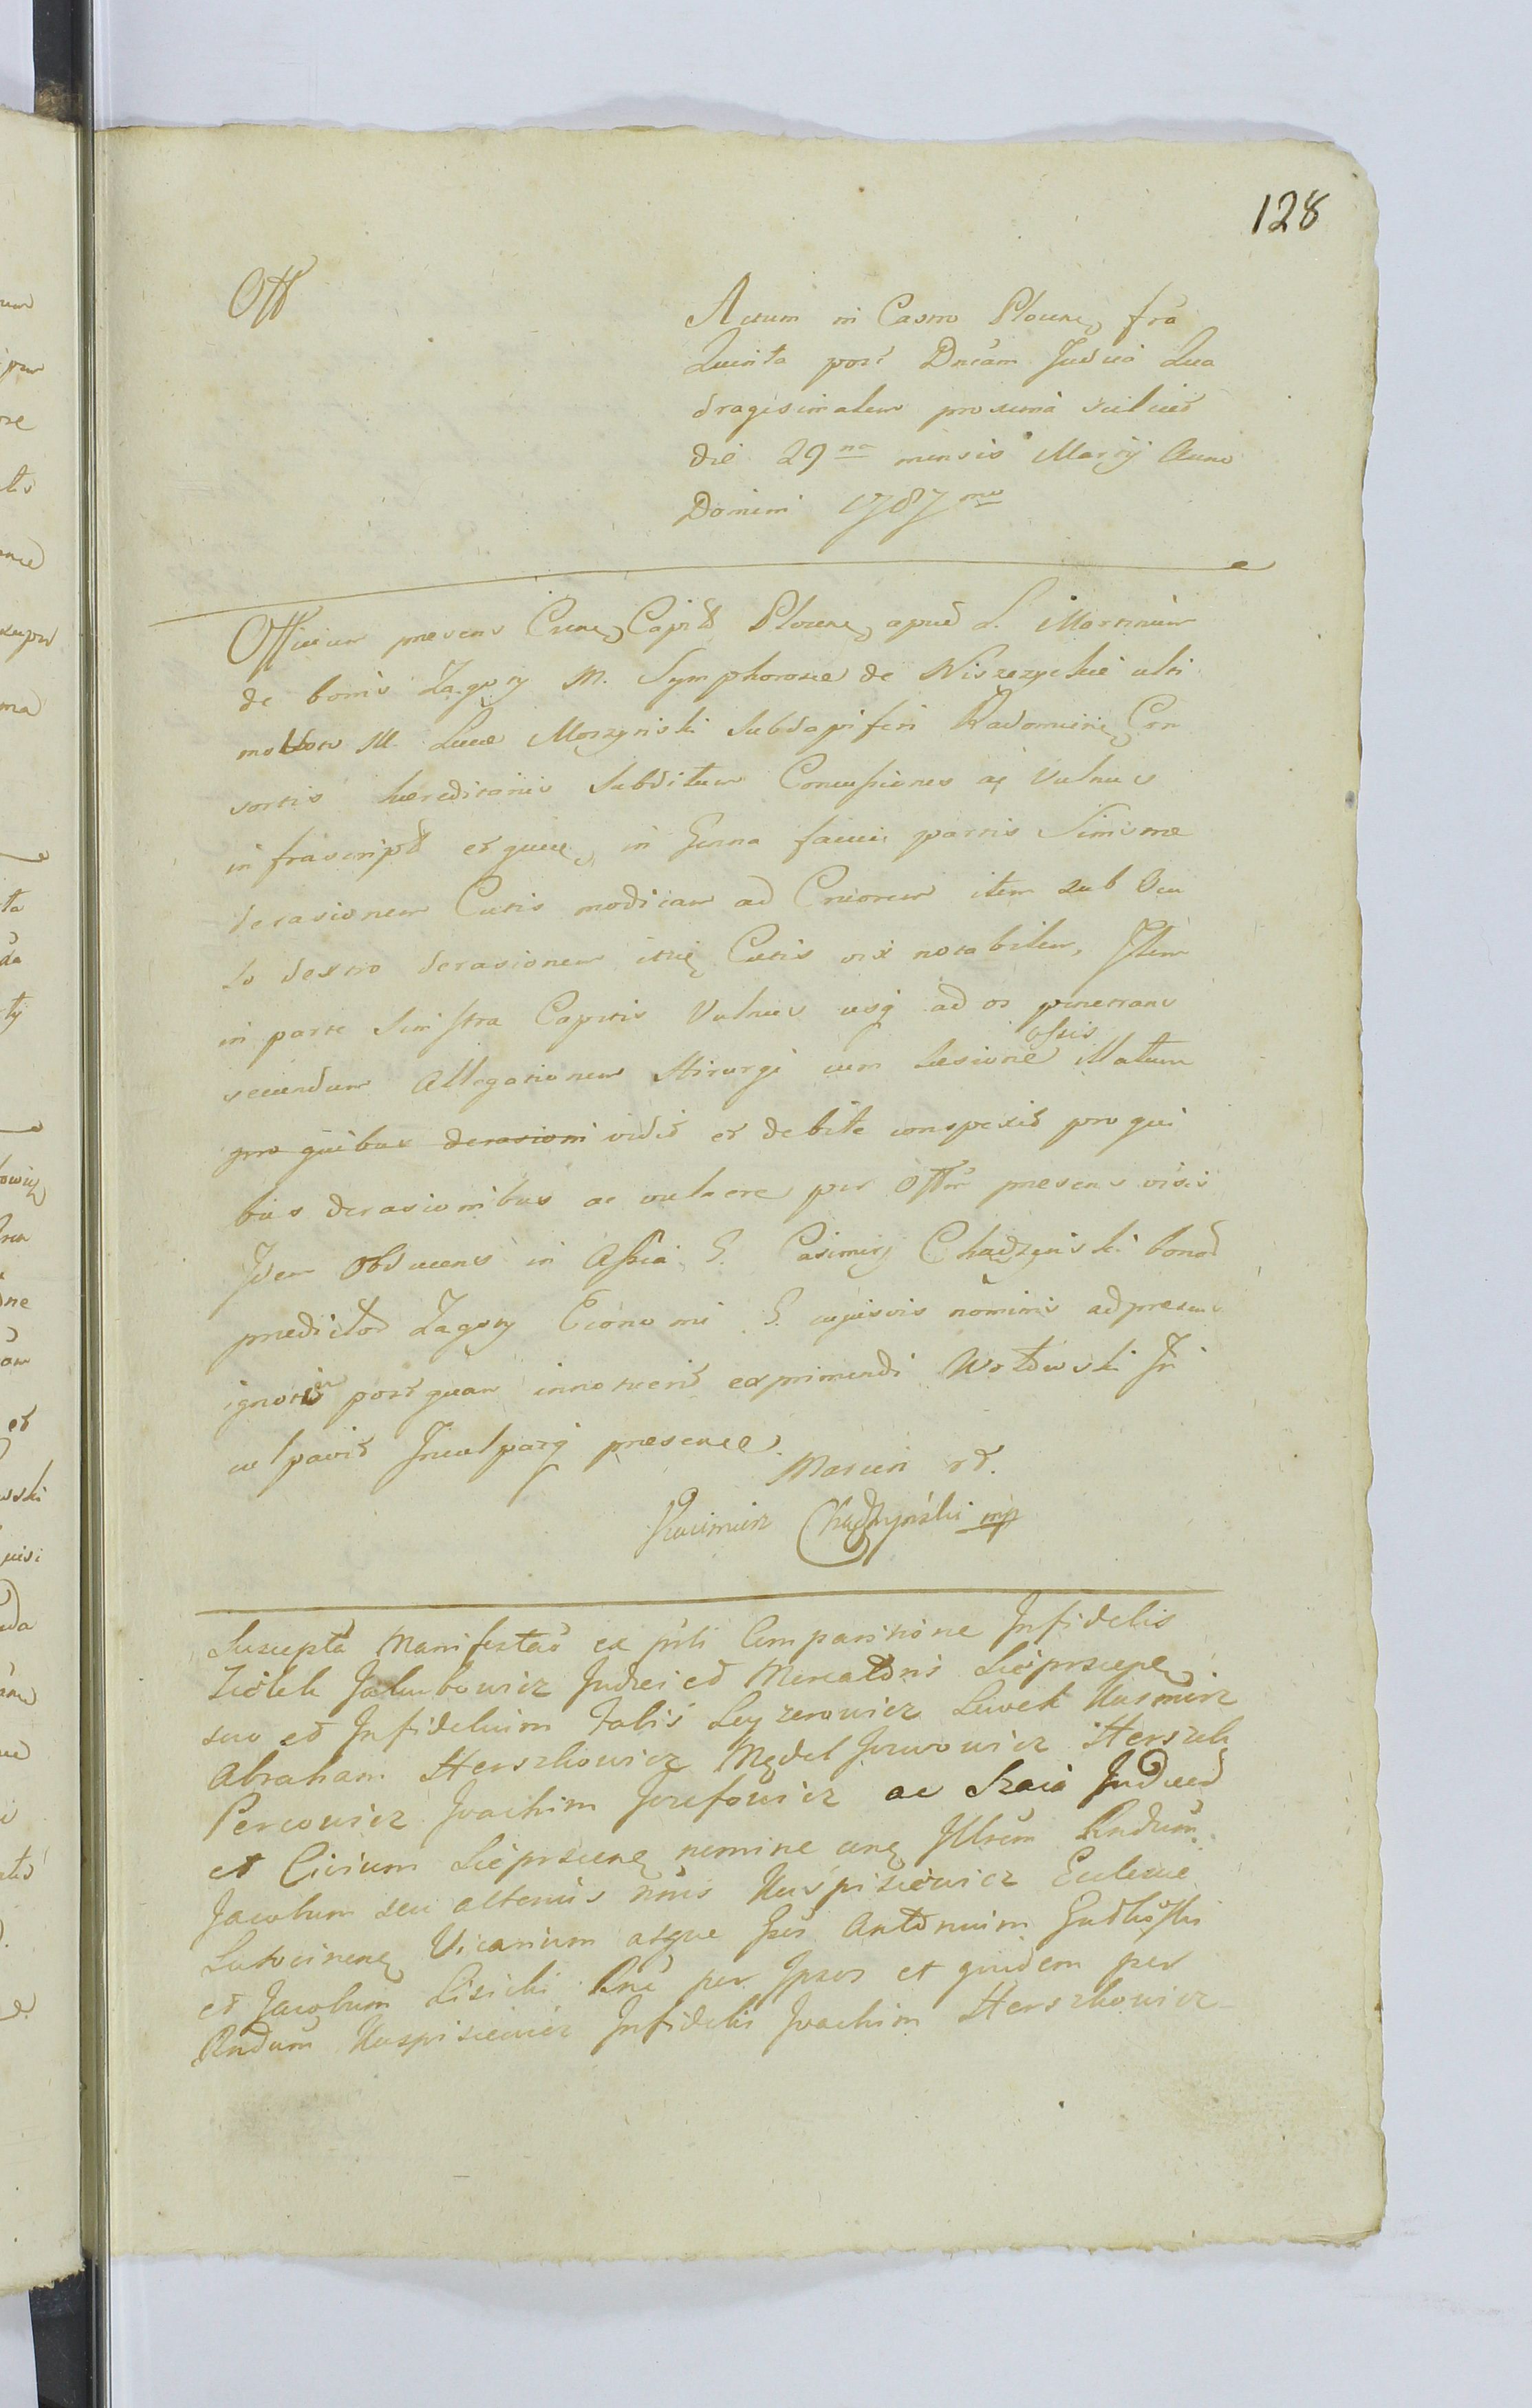 128
Off
Actum in Castro Plocen, fra
Quinta post Dncam Judica Qua
dragesimalem proxima scilicet
die 29na mensis Martij Anno
Domini 1787mo
Officium presens Castren, Capitl Plocen, apud L. Martinum
de bonis Zagory M. Symphorosae de Niszczyckie ulti
mo M. Lucae Morzynski Subdapiferi Radomien, Con
sortis haereditariis Subditum Concussiones ac Vulnus
infrascript et quae, in Genna faciei partis Sinistrae
derasionem Cutis modicam ad Cruorem item sub Ocu
lo dextro derasionem itiae Cutis vix notabilem, Item
in parte Sinistra Capitis Vulnus usq ad os penetrans
secundum Allegationem Hirurgi cum laesione ossis illatum
pro quibus derasioni vidit et debite conspexit pro qui
bus derasionibus ac vulnere per Offm presens visis
Idem Obducens in Assia G. Casimirj Chądzyński bonor
praedictor Zagory Econo mi G. cujusvis nominis ad presens
ignoti postquam innotuerit exprimendi Wotowski In
culpavit Inculpatq presence.
Marcin rd.
Kazimierz Chądzyński mp
Suscepta Manifestao ex prli Comparitione Infidelis
Ziolek Jakubowicz Judei ed Mercatoris Sieprscepe,
suo ed Infidelium Tabis Leyzerowicz Lewek Kusmierz
Abraham Herszkowicz Mędel Jozwowicz Herszek
Percowicz Joachim Jozefowicz ac Szaia Judeor
et Civium Sieprscene, nomine cing Illrem Rndum
Jacobum seu alterius nmis Kuspisiewicz Ecclesiae
Lutocinene, Vicarium atque Gsos Antonium Gudkoski
et Jacobum Lisicki Rne per Ipsos et quidem per
Rndum Kuspisiewicz Infidelis Joachim Herszkowicz